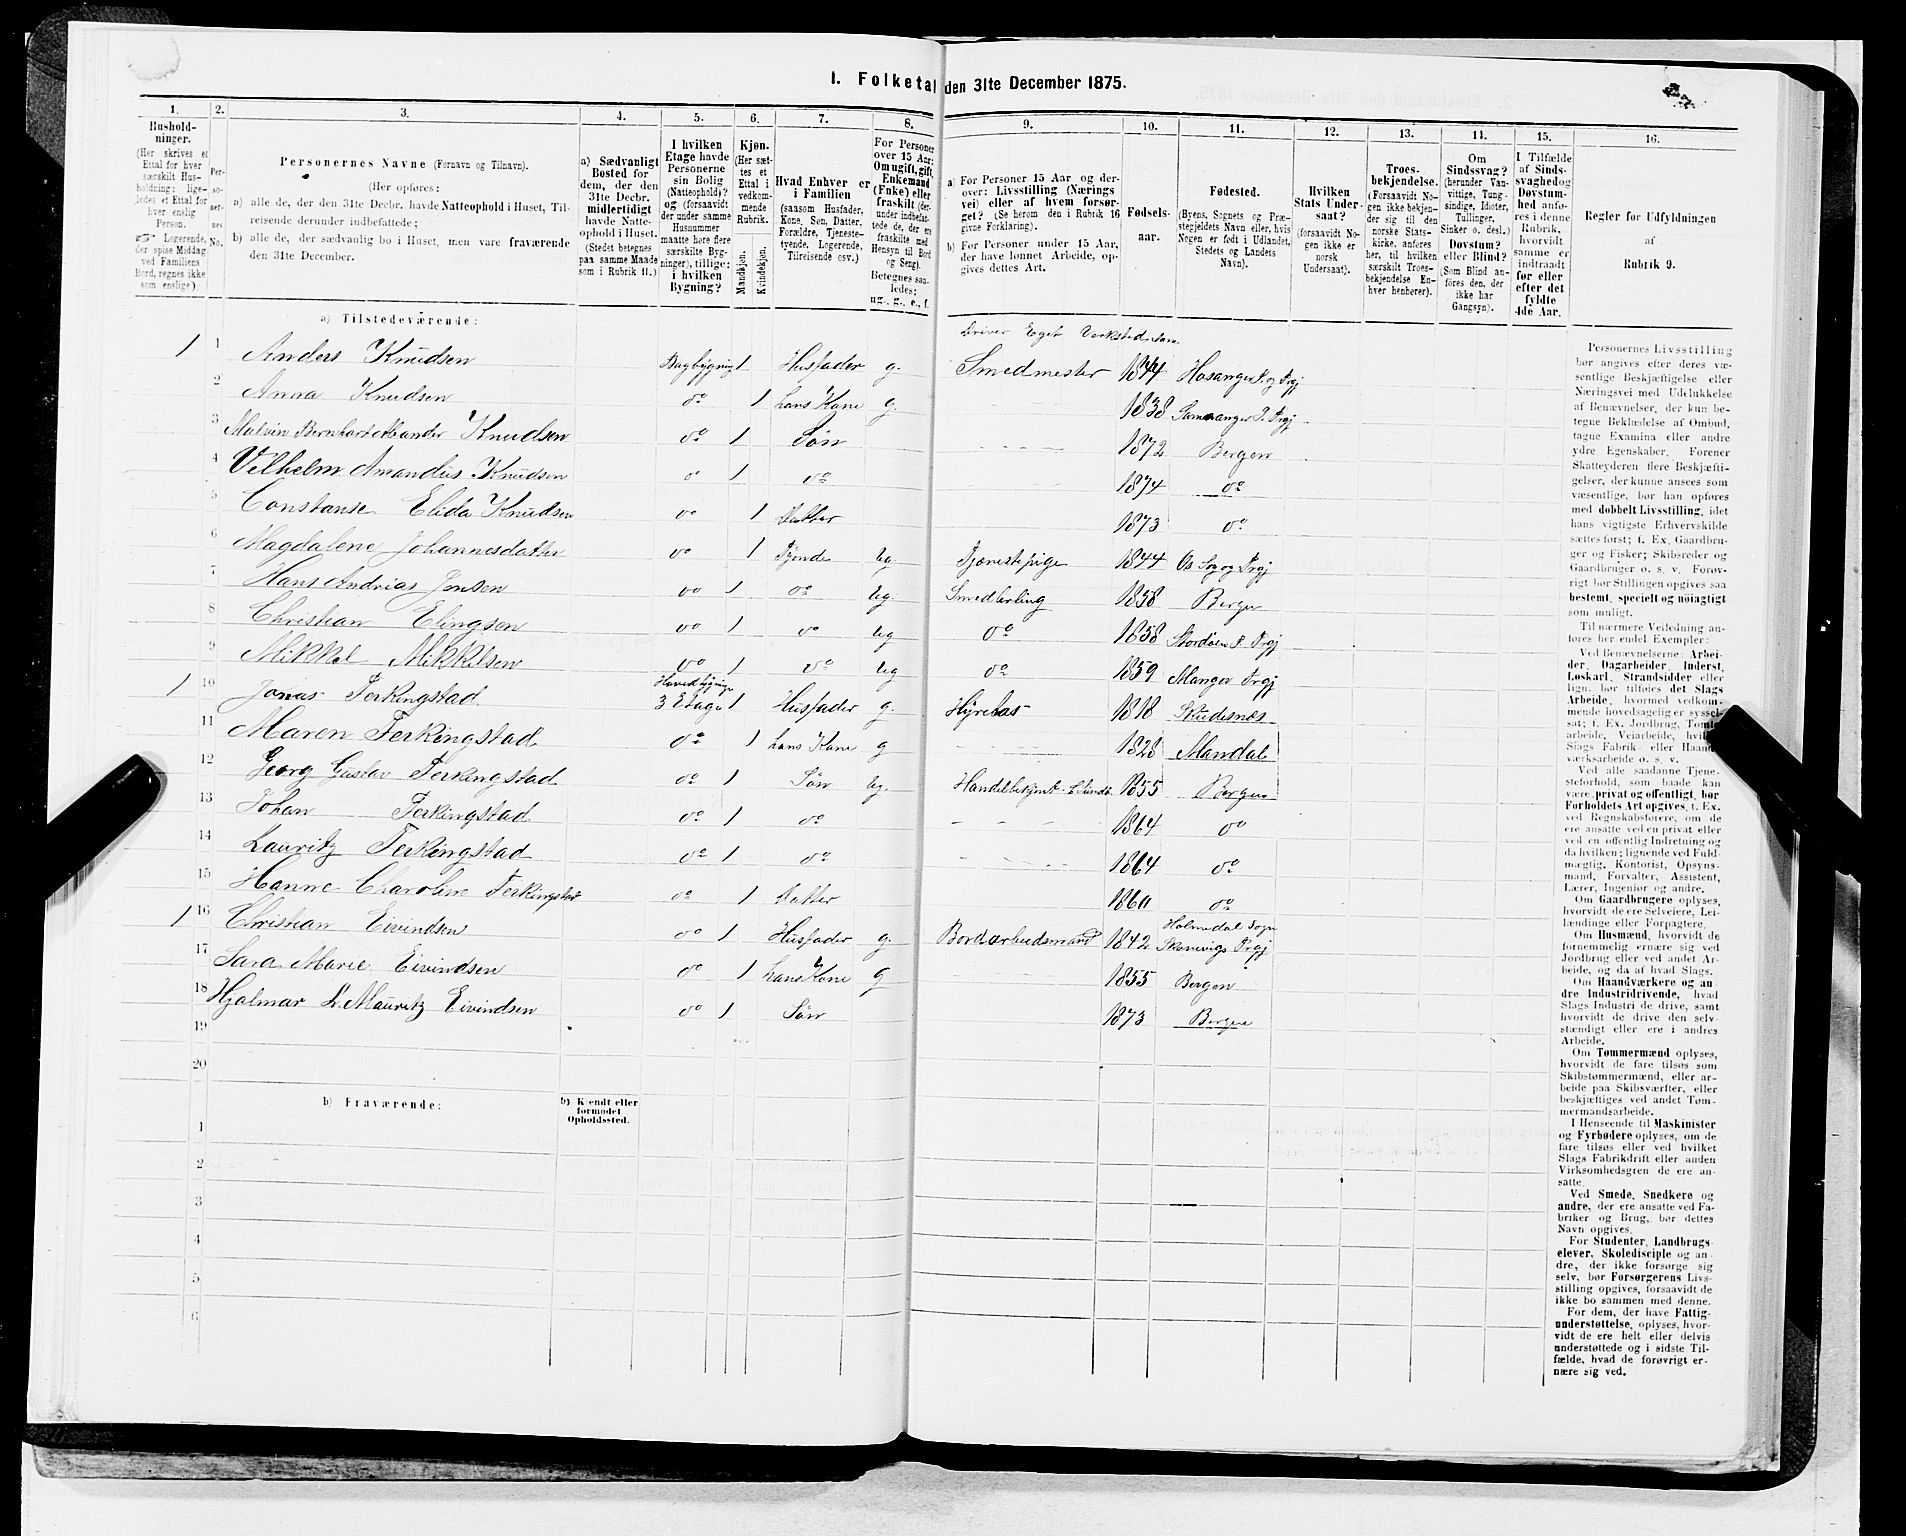 1. Folketal den 31te December 1875.
1. 2. 3. 4. 5. 6. 7. 8. 9. 10. 11. 12. 13. 14. 15. 16.
Husholdninger.
(Her skrives et
Ettal for hver
særskilt Husholdning;
ligeledes et Ettal for
hver enslig
Person.
Logerende,
der spise Middag
ved Familiens
Bord, regnes ikke
som enslige)
Personernes No.
Personernes Navne (Fornavn og Tilnavn).
(Her opføres:
a) alle de, der den 31te Decbr. havde Natteophold i Huset, Tilreisende derunder indbefattede;
b) alle de, der sædvanlig bo i Huset, men vare fraværende
den 31te December.
a) Sædvanligt
Bosted for
dem, der den
31te Decbr.
midlertidigt
havde Natteophold i Huset.
(Stedet betegnes
paa samme Maade
som i Rubrik 11.)
I hvilken
Etage havde
Personerne
sin Bolig
(Natteophold)?
og (forsaavidt
der under samme
Husnummer
maatte høre flere
særskilte Bygninger), tillige:
i hvilken
Bygning?
Kjøn.
(Her sættes et
Ettal i
vedkommende
Rubrik.)
Mandkjøn.
Kvindekjøn.
Hvad Enhver er
i Familien
(saasom Husfader,
Kone, Søn, Datter,
Forældre, Tjenestetyende, Logerende,
Tilreisende osv.)
For Personer
over 15 Aar:
Om ugift, gift,
Enkemand
(Enke) eller
fraskilt
(derunder indbefattede de, der ere
fraskilte med
Hensyn til Bord
og Seng).
Betegnes saaledes:
ug., g., e., f.
a) For Personer 15 Aar og derover: Livsstilling (Næringsvei) eller af hvem forsørget? (Se herom den i Rubrik 16
givne Forklaring).
b) For Personer under 15 Aar,
der have lønnet Arbeide, opgives dettes Art.
Fødselsaar.
Fødested.
(Byens, Sognets og Præstegjeldets Navn eller, hvis
Nogen er født i Udlandet,
Stedets og Landets
Navn).
Hvilken
Stats Undersaat?
(forsaavidt Nogen ikke er
norsk
Undersaat).
Troesbekjendelse.
(Forsaavidt Nogen ikke bekjender sig til den
norske Statskirke, anføres
her, til hvilken
særskilt Troesbekjendelse Enhver henhører).
Om
Sindssvag?
(herunder Vanvittige, Tungsindige, Idioter,
Tullinger,
Sinker o. desl.)
Døvstum?
eller Blind?
(Som Blind anføres den, der
ikke har
Gangsyn).
I Tilfælde
af Sindssvaghed og
Døvstumhed anføres i denne
Rubrik,
hvorvidt
samme er
indtraadt
før eller
efter det
fyldte
4de Aar.
Regler for Udfyldningen
af
Rubrik 9.
a) Tilstedeværende:
Driver Eget Verksted
1 1 Anders Knudsen Bagbygnig 1 Husfader g. Smedmester 1844 Hosanger S. og Prgj
2 Anna Knudsen do 1 hans Kone g. 1838 Samnanger S. Prgj
3 Malvin Bernhart Knudsen do 1 Søn 1872 Bergen
4 Velhelm Amandus Knudsen do 1 do 1874 do
5 Constanse Elida Knudsen do 1 Datter 1873 do
6 Magdalene Johannesdatter do 1 Tjende ug Tjenestepige 1844 Os Sog og Prgj
7 Hans Andrias Jensen do 1 do ug. Smedlerling 1858 Bergen
8 Christian Elingsen do 1 do ug do 1858 Stordøen S. Prgj
9 Mikkel Mikkelsen do 1 do ug do 1859 Manger Prgj
1 10 Jonas Ferkingstad Hovedbygnige 3 Etage 1 Husfader g. Hyrelos 1818 Skudesnæs
11 Maren Ferkingstad do 1 hans Kone g 1828 Mandal
12 Georg Gustav Ferkingstad do 1 Søn ug. 1855 Bergen
13 Johan Ferkingstad do 1 do 1864 do
14 Lauritz Ferkingstad do 1 do 1864 do
15 Hanne Charoline Ferkingstad do 1 Datter 1860 do
1 16 Christian Eivindsen do 1 Husfader g. Bordarbeidsmand 1842 Holmedal Sogn Skonevigs Prgj
17 Sara Marie Eivindsen do 1 hans Kone g 1855 Bergen
18 Hjalmar L. Mauritz Eivindsen do 1 Søn 1873 Bergen
19
20
b) Fraværende:
b) Kjendt eller
formodet
Opholdssted.
1
2
3
4
5
6
Personernes Livsstilling
bør angives efter deres væsentlige Beskjæftigelse eller
Næringsvei med Udelukkelse
af Benævnelser, der kun betegne Beklædelse af Ombud,
tagne Examina eller andre
ydre Egenskaber. Forener
Skatteyderen flere Beskjæftigelser, der kunne ansees som
væsentlige, bør han opføres
med dobbelt Livsstilling, idet
hans vigtigste Erhvervskilde
sættes først; f. Ex. Gaardbruger og Fisker; Skibsreder og
Gaardbruger o. s. v. Forøvrigt bør Stillingen opgives saa
bestemt, specielt og nøiagtigt
som muligt.
Til nærmere Veiledning anføres her endel Exempler:
Ved Benævnelserne: Arbeider, Dagarbeider, Inderst,
Løskarl, Strandsidder eller
lign. bør tilføies det Slags
Arbeide, hvormed vedkommende hovedsagelig er sysselsat; f. Ex. Jordbrug, Tomtearbeide, Veiarbeide, hvilket
Slags Fabrik- eller Haandværksarbeide o. s. v.
Ved alle saadanne Tjenesteforhold, som baade kan
være privat og offentligt, bør
Forholdets Art opgives, f. Ex.
ved Regnskabsførere, om de
ere ansatte ved en privat eller
ved en offentlig Indretning og
da hvilken; lignende ved Fuldmægtig, Kontorist, Opsynsmand, Forvalter, Assistent,
Lærer, Ingeniør og andre.
Om Gaardbrugere oplyses,
hvorvidt de ere Selveiere, Leilændinge eller Forpagtere.
Om Husmænd, hvorvidt de
fornemmelig ernære sig ved
Jordbrug eller ved andet Arbeide, og da af hvad Slags.
Om Haandværkere og andre Industridrivende, hvad
Slags Industri de drive, samt
hvorvidt de drive den selvstændigt eller ere i andres
Arbeide.
Om Tømmermænd oplyses,
hvorvidt de fare tilsøs som
Skibstømmermænd, eller arbeide paa Skibsværfter, eller
beskjæftiges ved andet Tømmermandsarbeide.
I Henseende til Maskinister
og Fyrbødere oplyses, om de
fare tilsøs eller ved hvilket
Slags Fabrikdrift eller anden
Virksomhedsgren de ere ansatte.
Ved Smede, Snedkere og
andre, der ere ansatte ved Fabriker og Brug, bør dettes
Navn opgives.
For Studenter, Landbrugselever, Skoledisciple og andre, der ikke forsørge sig
selv, bør Forsørgerens Livsstilling opgives, forsaavidt de
ikke bo sammen med denne.
For dem, der have Fattigunderstøttelse, oplyses, hvorvidt de ere helt eller delvis
understøttede og i sidste Tilfælde, hvad de forøvrigt ernære sig ved.